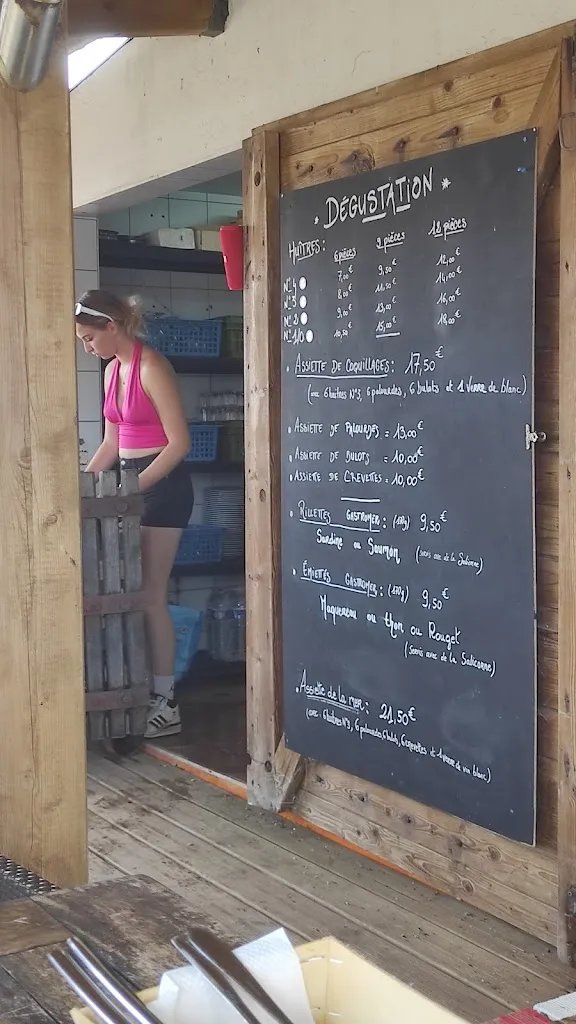 * DÉGUSTATION *
HUÎTRES: 6 pièces 9 pièces 12 pièces
N°4 7,00€ 9,50€ 12,00€
N°3 8,00€ 11,50€ 14,00€
N°2 9,00€ 13,00€ 16,00€
N°1/0 10,50€ 15,00€ 18,00€
• ASSIETTE DE COQUILLAGES: 17,50€
(avec 6 huîtres N°3, 6 palourdes, 6 bulots et 1 verre de blanc)
• ASSIETTE DE PALOURDES = 13,00€
• ASSIETTE DE BULOTS = 10,00€
• ASSIETTE DE CREVETTES = 10,00€
• RILLETTES GASTROMER: 9,50€
Sardine ou Saumon (servis avec de la Salicorne)
• ÉMIETTÉS GASTROMER: (170g) 9,50€
Maquereau ou thon ou Rouget
(servis avec de la Salicorne)
• Assiette de la mer: 21,50€
(avec 6 huîtres N°3, 6 palourdes, 6 bulots, 6 crevettes et 1 verre de vin blanc)